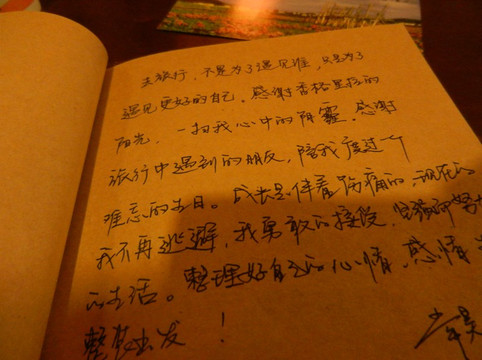 去旅行，不是为了遇见谁，只是为了
遇见更好的自己。感谢香格里拉的
阳光，一扫我心中的阴霾。感谢
旅行中遇到的朋友，陪我度过一个
难忘的生日。成长是伴着伤痛的，现在的
我不再逃避，我勇敢的接受，
的生活。整理好自己的心情，感情
整装出发！